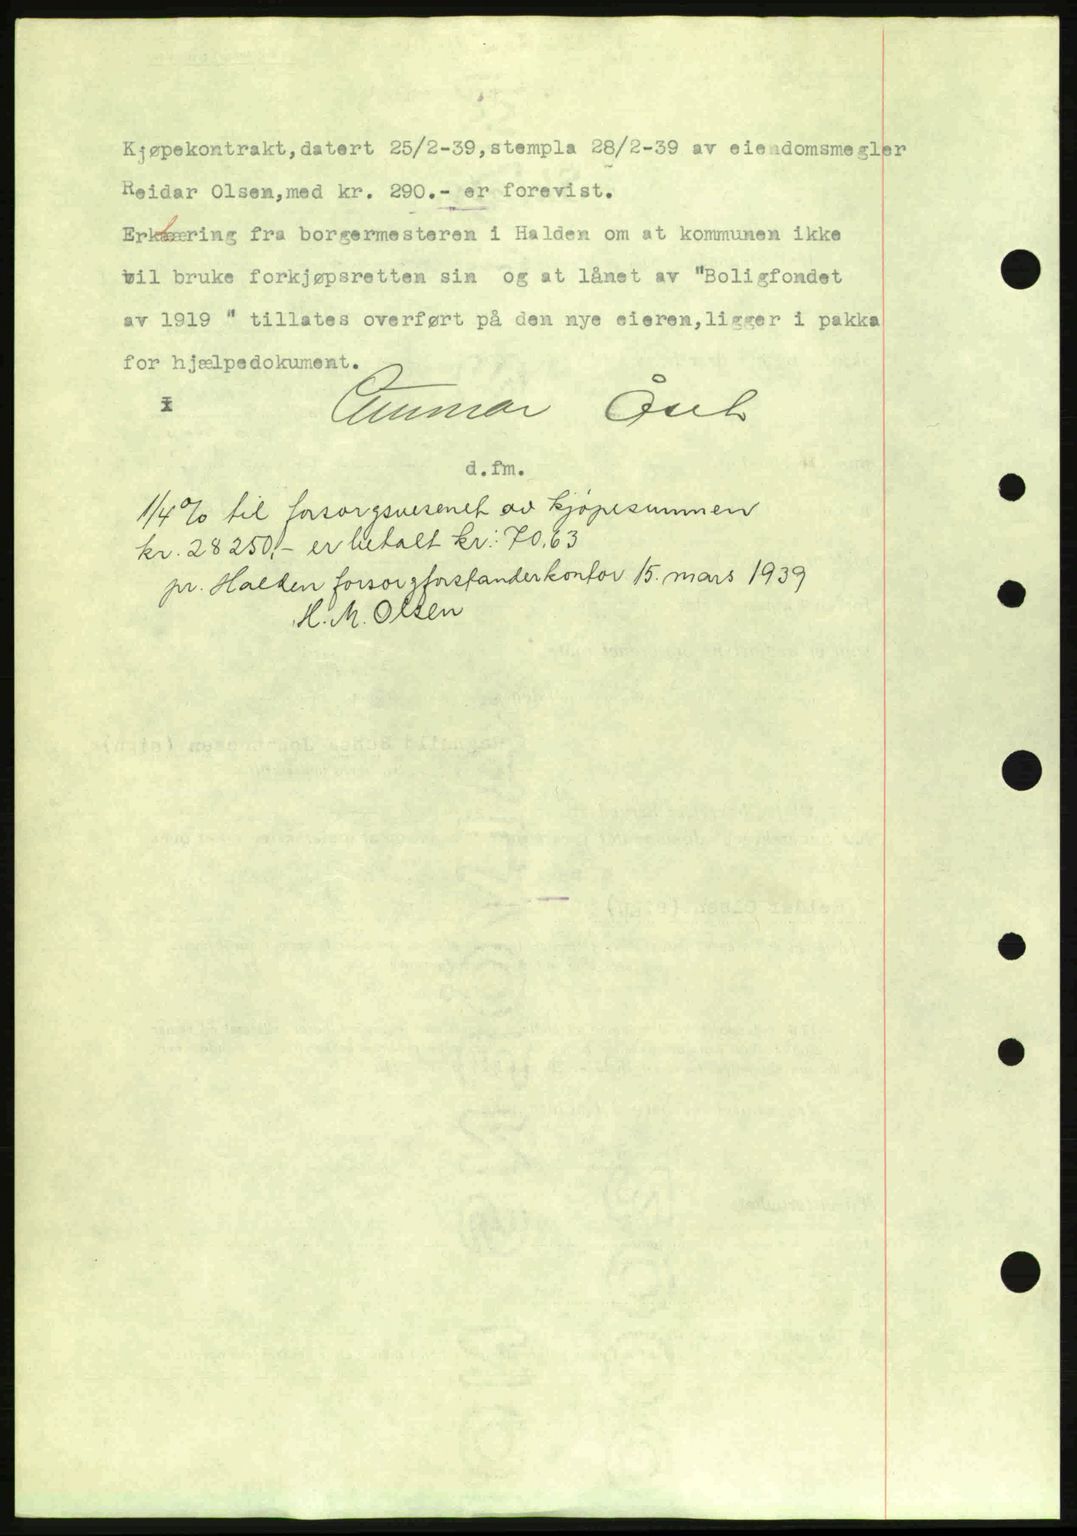 Kjøpekontrakt,datert 25/2-39,stempla 28/2-39 av eiendomsmegler
Reidar Olsen,med kr. 290.- er forevist.
Erklæring fra borgermesteren i Halden om at kommunen ikke
vil bruke forkjøpsretten sin og at lånet av "Boligfondet
av 1919 " tillates overført på den nye eieren,ligger i pakka
for hjælpedokument.
Gunnar
d.fm.
1/4 % til forsorgsvesenet av kjøpesummen
kr. 28250,- er betalt kr.: 70,63
pr. Halden forsorgforstanderkontor 15. mars 1939
H. M. Olsen